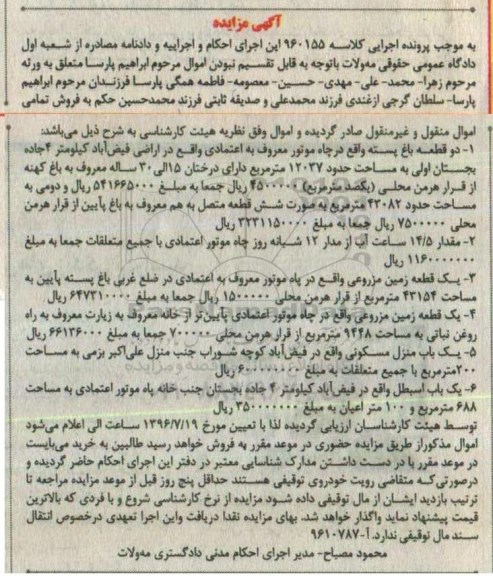 آگهی مزایده
به موجب پرونده اجرایی کلاسه ۹۶۰۱۵۵ این اجرای احکام و اجراییه و دادنامه مصادره از شعبه اول
دادگاه عمومی حقوقی مه‌ولات باتوجه به قابل تقسیم نبودن اموال مرحوم ابراهیم پارسا متعلق به ورثه
مرحوم زهرا- محمد- علی- مهدی- حسین- معصومه- فاطمه همگی پارسا فرزندان مرحوم ابراهیم
پارسا- سلطان گرجی ازغندی فرزند محمدعلی و صدیقه ثابتی فرزند محمدحسین حکم به فروش تمامی
اموال منقول و غیرمنقول صادر گردیده و اموال وفق نظریه هیئت کارشناسی به شرح ذیل می‌باشد:
۱- دو قطعه باغ پسته واقع درچاه موتور معروف به اعتمادی واقع در اراضی فیض‌آباد کیلومتر ۴جاده
بجستان اولی به مساحت حدود ۱۲۰۳۷ مترمربع دارای درختان ۱۵الی۳۰ ساله معروف به باغ کهنه
از قرار هرمن محلی (یکصد مترمربع) ۴۵۰۰۰۰۰ ریال جمعا به مبلغ ۵۴۱۶۶۵۰۰۰ ریال و دومی به
مساحت حدود ۴۳۰۸۲ مترمربع به صورت شش قطعه متصل به هم معروف به باغ پایین از قرار هرمن
محلی ۷۵۰۰۰۰۰ ریال جمعا به مبلغ ۳۲۳۱۱۵۰۰۰۰ ریال
۲- مقدار ۱۴/۵ ساعت آب از مدار ۱۲ شبانه روز چاه موتور اعتمادی با جمیع متعلقات جمعا به مبلغ
۱۱۶۰۰۰۰۰۰۰ ریال
۳- یک قطعه زمین مزروعی واقع در چاه موتور معروف به اعتمادی در ضلع غربی باغ پسته پایین به
مساحت ۴۳۱۵۴ مترمربع از قرار هرمن محلی ۱۵۰۰۰۰۰ ریال جمعا به مبلغ ۶۴۷۳۱۰۰۰۰ ریال
۴- یک قطعه زمین مزروعی واقع در چاه موتور اعتمادی پایین‌تر از خانه معروف به زیارت معروف به راه
روغن نباتی به مساحت ۹۴۴۸ مترمربع از قرار هرمن محلی ۷۰۰۰۰۰ جمعا به مبلغ ۶۶۱۳۶۰۰۰ ریال
۵- یک باب منزل مسکونی واقع در فیض‌آباد کوچه شوراب جنب منزل علی‌اکبر بزمی به مساحت
۲۰۰مترمربع با جمیع متعلقات به مبلغ ۶۰۰۰۰۰۰۰۰ ریال
۶- یک باب اسطبل واقع در فیض‌آباد کیلومتر ۴ جاده بجستان جنب خانه پاه موتور اعتمادی به مساحت
۶۸۸ مترمربع و ۱۰۰ متر اعیان به مبلغ ۳۵۰۰۰۰۰۰۰ ریال
توسط هیئت کارشناسان ارزیابی گردیده لذا با تعیین مورخ ۱۳۹۶/۷/۱۹ ساعت الی اعلام می‌شود
اموال مذکوراز طریق مزایده حضوری در موعد مقرر به فروش خواهد رسید طالبین به خرید می‌بایست
در موعد مقرر با در دست داشتن مدارک شناسایی معتبر در دفتر این اجرای احکام حاضر گردیده و
درصورتی‌که متقاضی رویت خودروی توقیفی هستند حداقل پنج روز قبل از موعد مزایده مراجعه تا
ترتیب بازدید ایشان از مال توقیفی داده شود مزایده از نرخ کارشناسی شروع و با فردی که بالاترین
قیمت پیشنهاد نماید واگذار خواهد شد. بهای مزایده نقدا دریافت واین اجرا تعهدی درخصوص انتقال
سند مال توقیفی ندارد. آ-۹۶۱۰۷۸۷
محمود مصباح- مدیر اجرای احکام مدنی دادگستری مه‌ولات